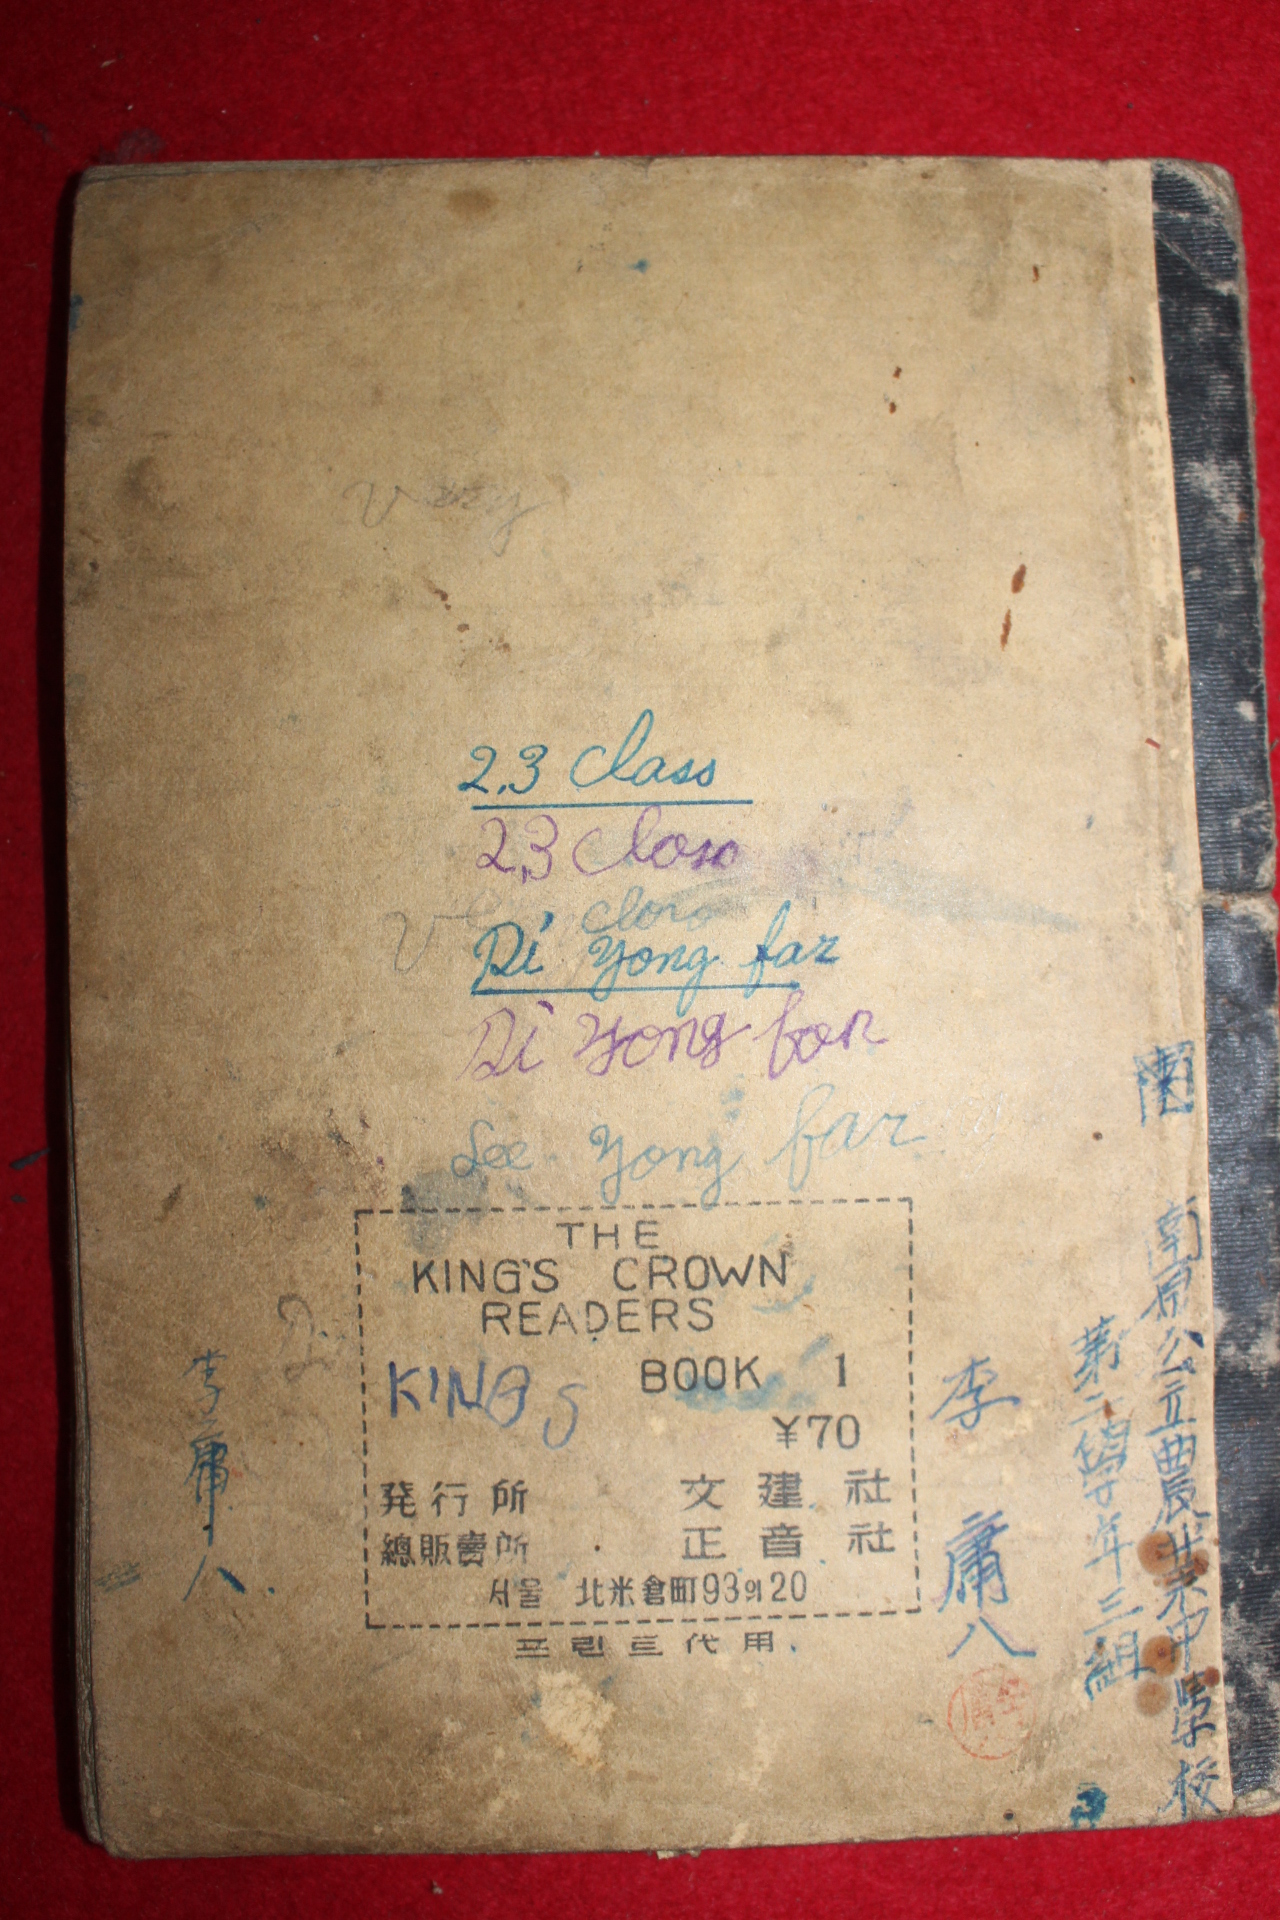 very
2.3 Class
2.3 Class
Ri Yong far
Ri Yong far
See Yong far
THE
KING'S CROWN
READERS
BOOK 1
KINGS
¥70
発行所 文建社
總販賣所 正音社
서울 北米倉町93의20
프린트代用
南
南原公立農業中學校
第二學年三組
李庸八
李庸八